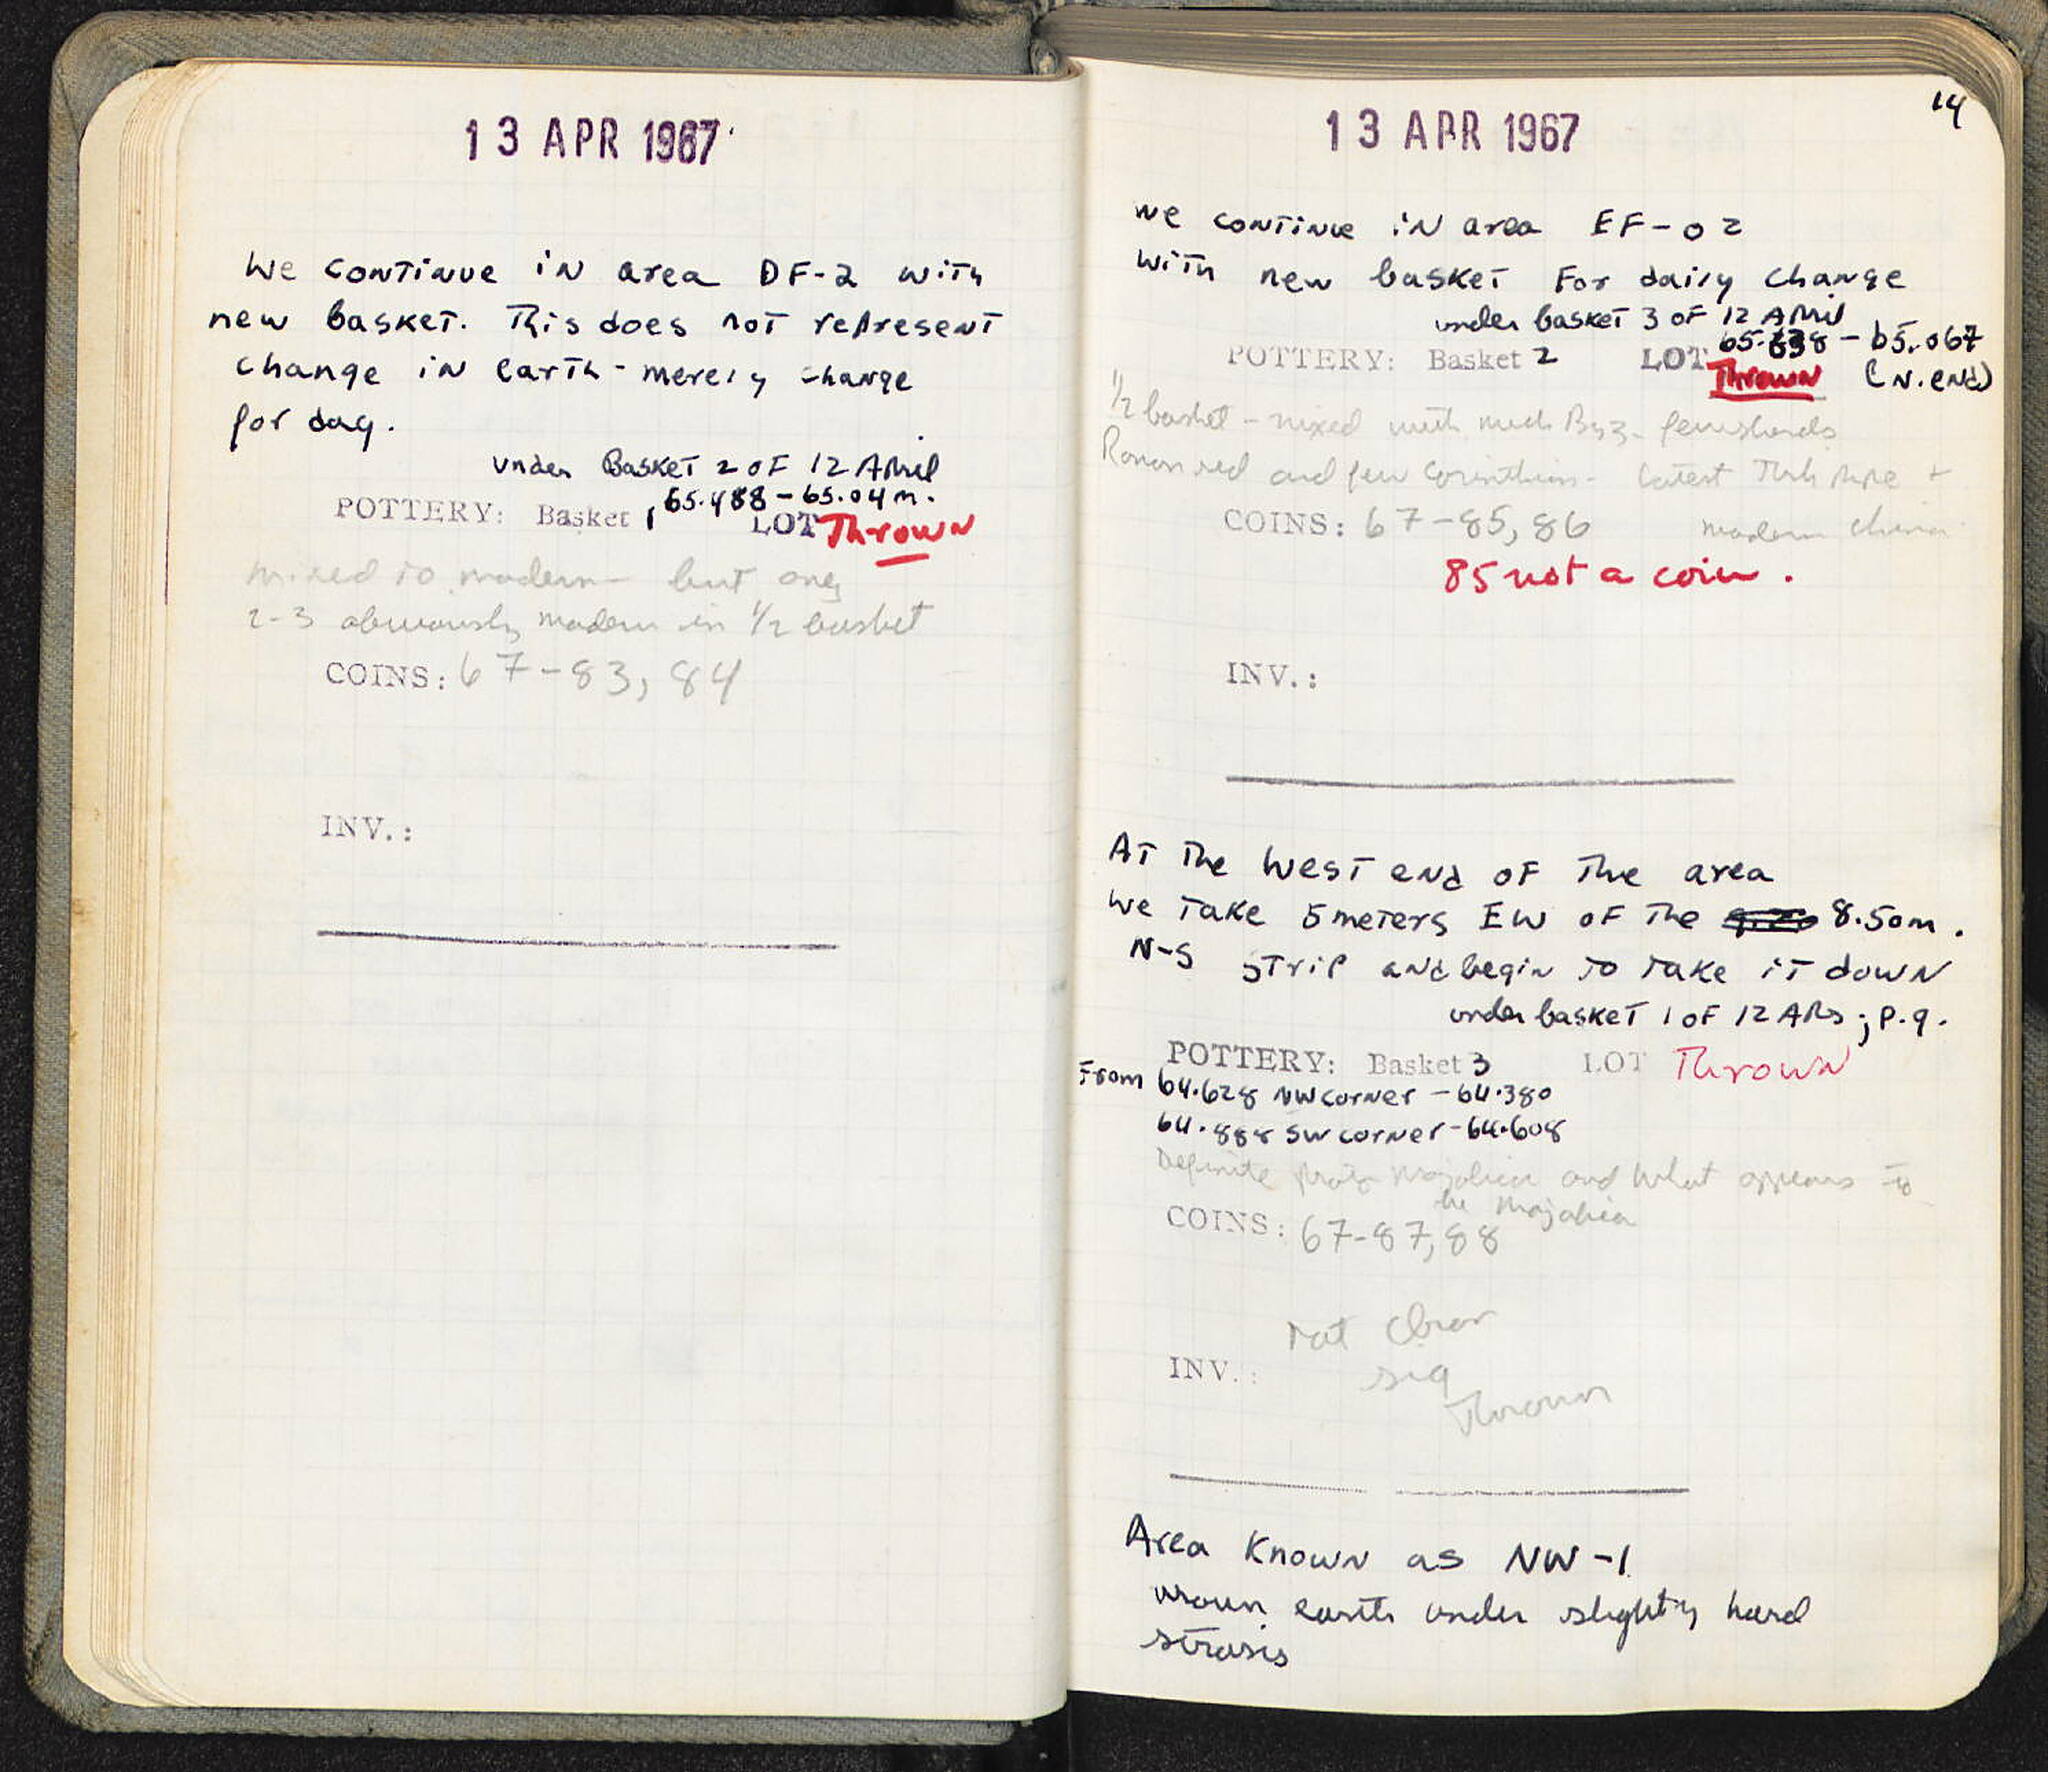 13 APR 1967
We continue in area DF-2 with
new basket. This does not represent
change in earth - merely change
for day.
under Basket 2 of 12 April
65.488 - 65.04 m.
POTTERY: Basket 1 LOT Thrown
mixed to modern - but only
2-3 obviously modern in 1/2 basket
COINS: 67-83, 84
INV.:
14
13 APR 1967
we continue in area EF-02
with new basket for daily change
under basket 3 of 12 April
- 65.067
POTTERY: Basket 2 LOT Thrown (N. end)
1/2 basket - mixed with much Byz.
Roman red and few Corinthian - latest Turk pipe +
COINS: 67-85, 86 modern china
85 not a coin.
INV.:
At the West end of the area
we take 5 meters EW of the 8.50m.
N-S strip and begin to take it down
under basket 1 of 12 Apr; p. 9.
POTTERY: Basket 3 LOT Thrown
From 64.628 NW corner - 64.380
64.888 SW corner - 64.608
Definite proto majolica and what appears to
be majolica
COINS: 67-87, 88
not clear
sig
INV.:
Thrown
Area Known as NW-1
brown earth under slightly hard
strosis